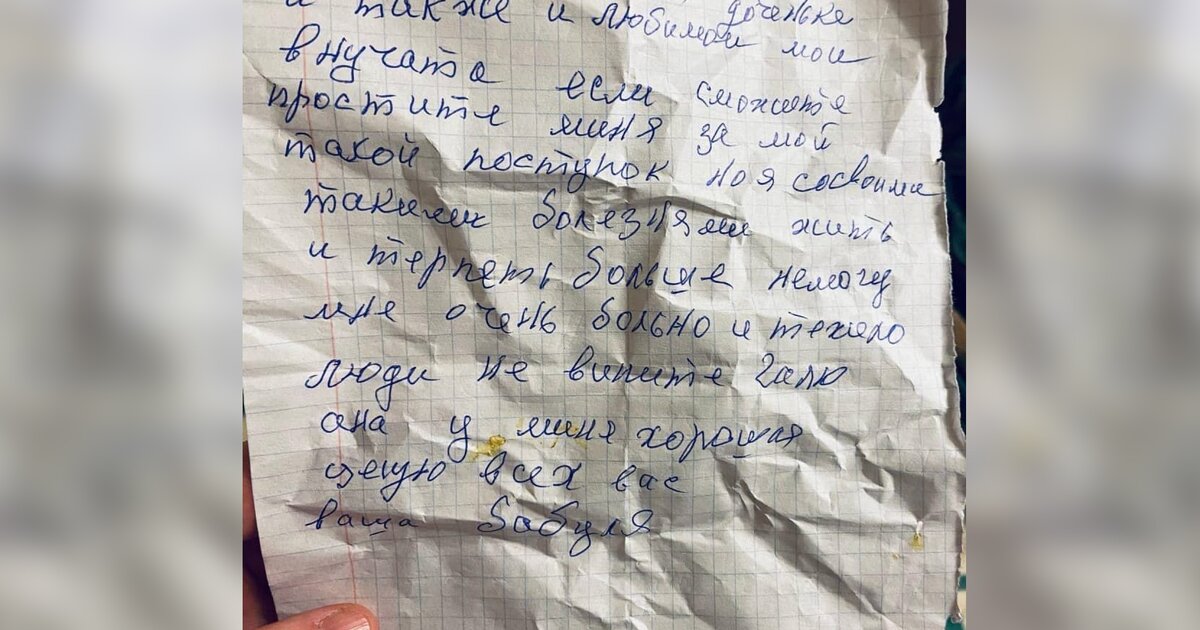 и также и любимой доченьке
мои
внучата если сможите
простите миня за мой
такой поступок но я сосвоими
такими болезнями жить
и терпеть больше немогу
мне очень больно и тежело
люди не вините Галю
ана у миня хорошая
целую всех вас
ваша бабуля